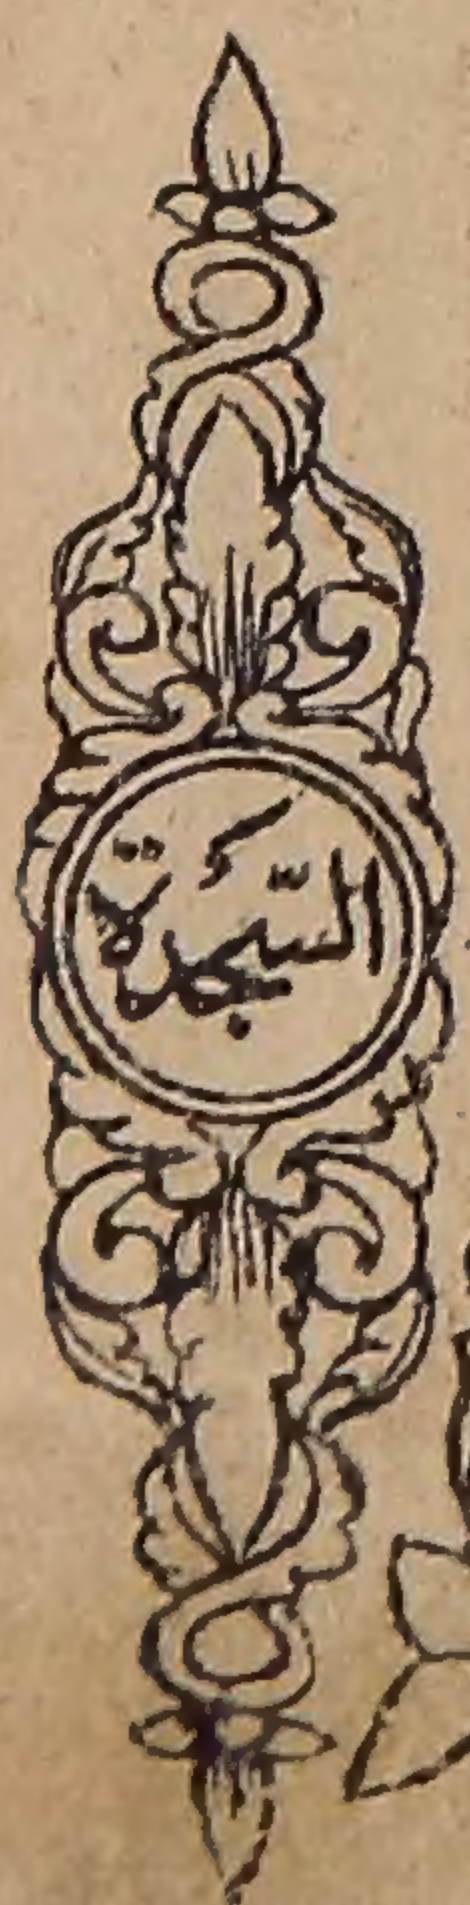 السّجدة